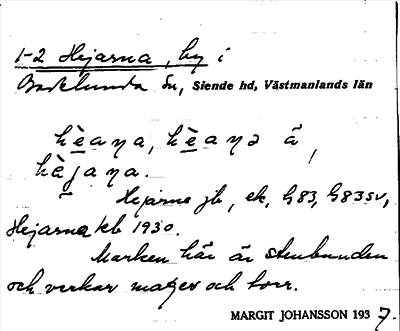 1-2 Hejarna, by i
Badelunda sn, Siende hd, Västmanlands län
hèaŋa, hèanə ä,
hèjaŋa.
Hejarne jb, ek, G83, G83SV,
Hejarna kb 1930.
Marken här är stenbunden
och verkar mager och torr.
MARGIT JOHANSSON 1937.